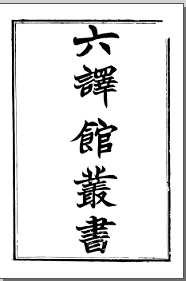 六譯館叢書